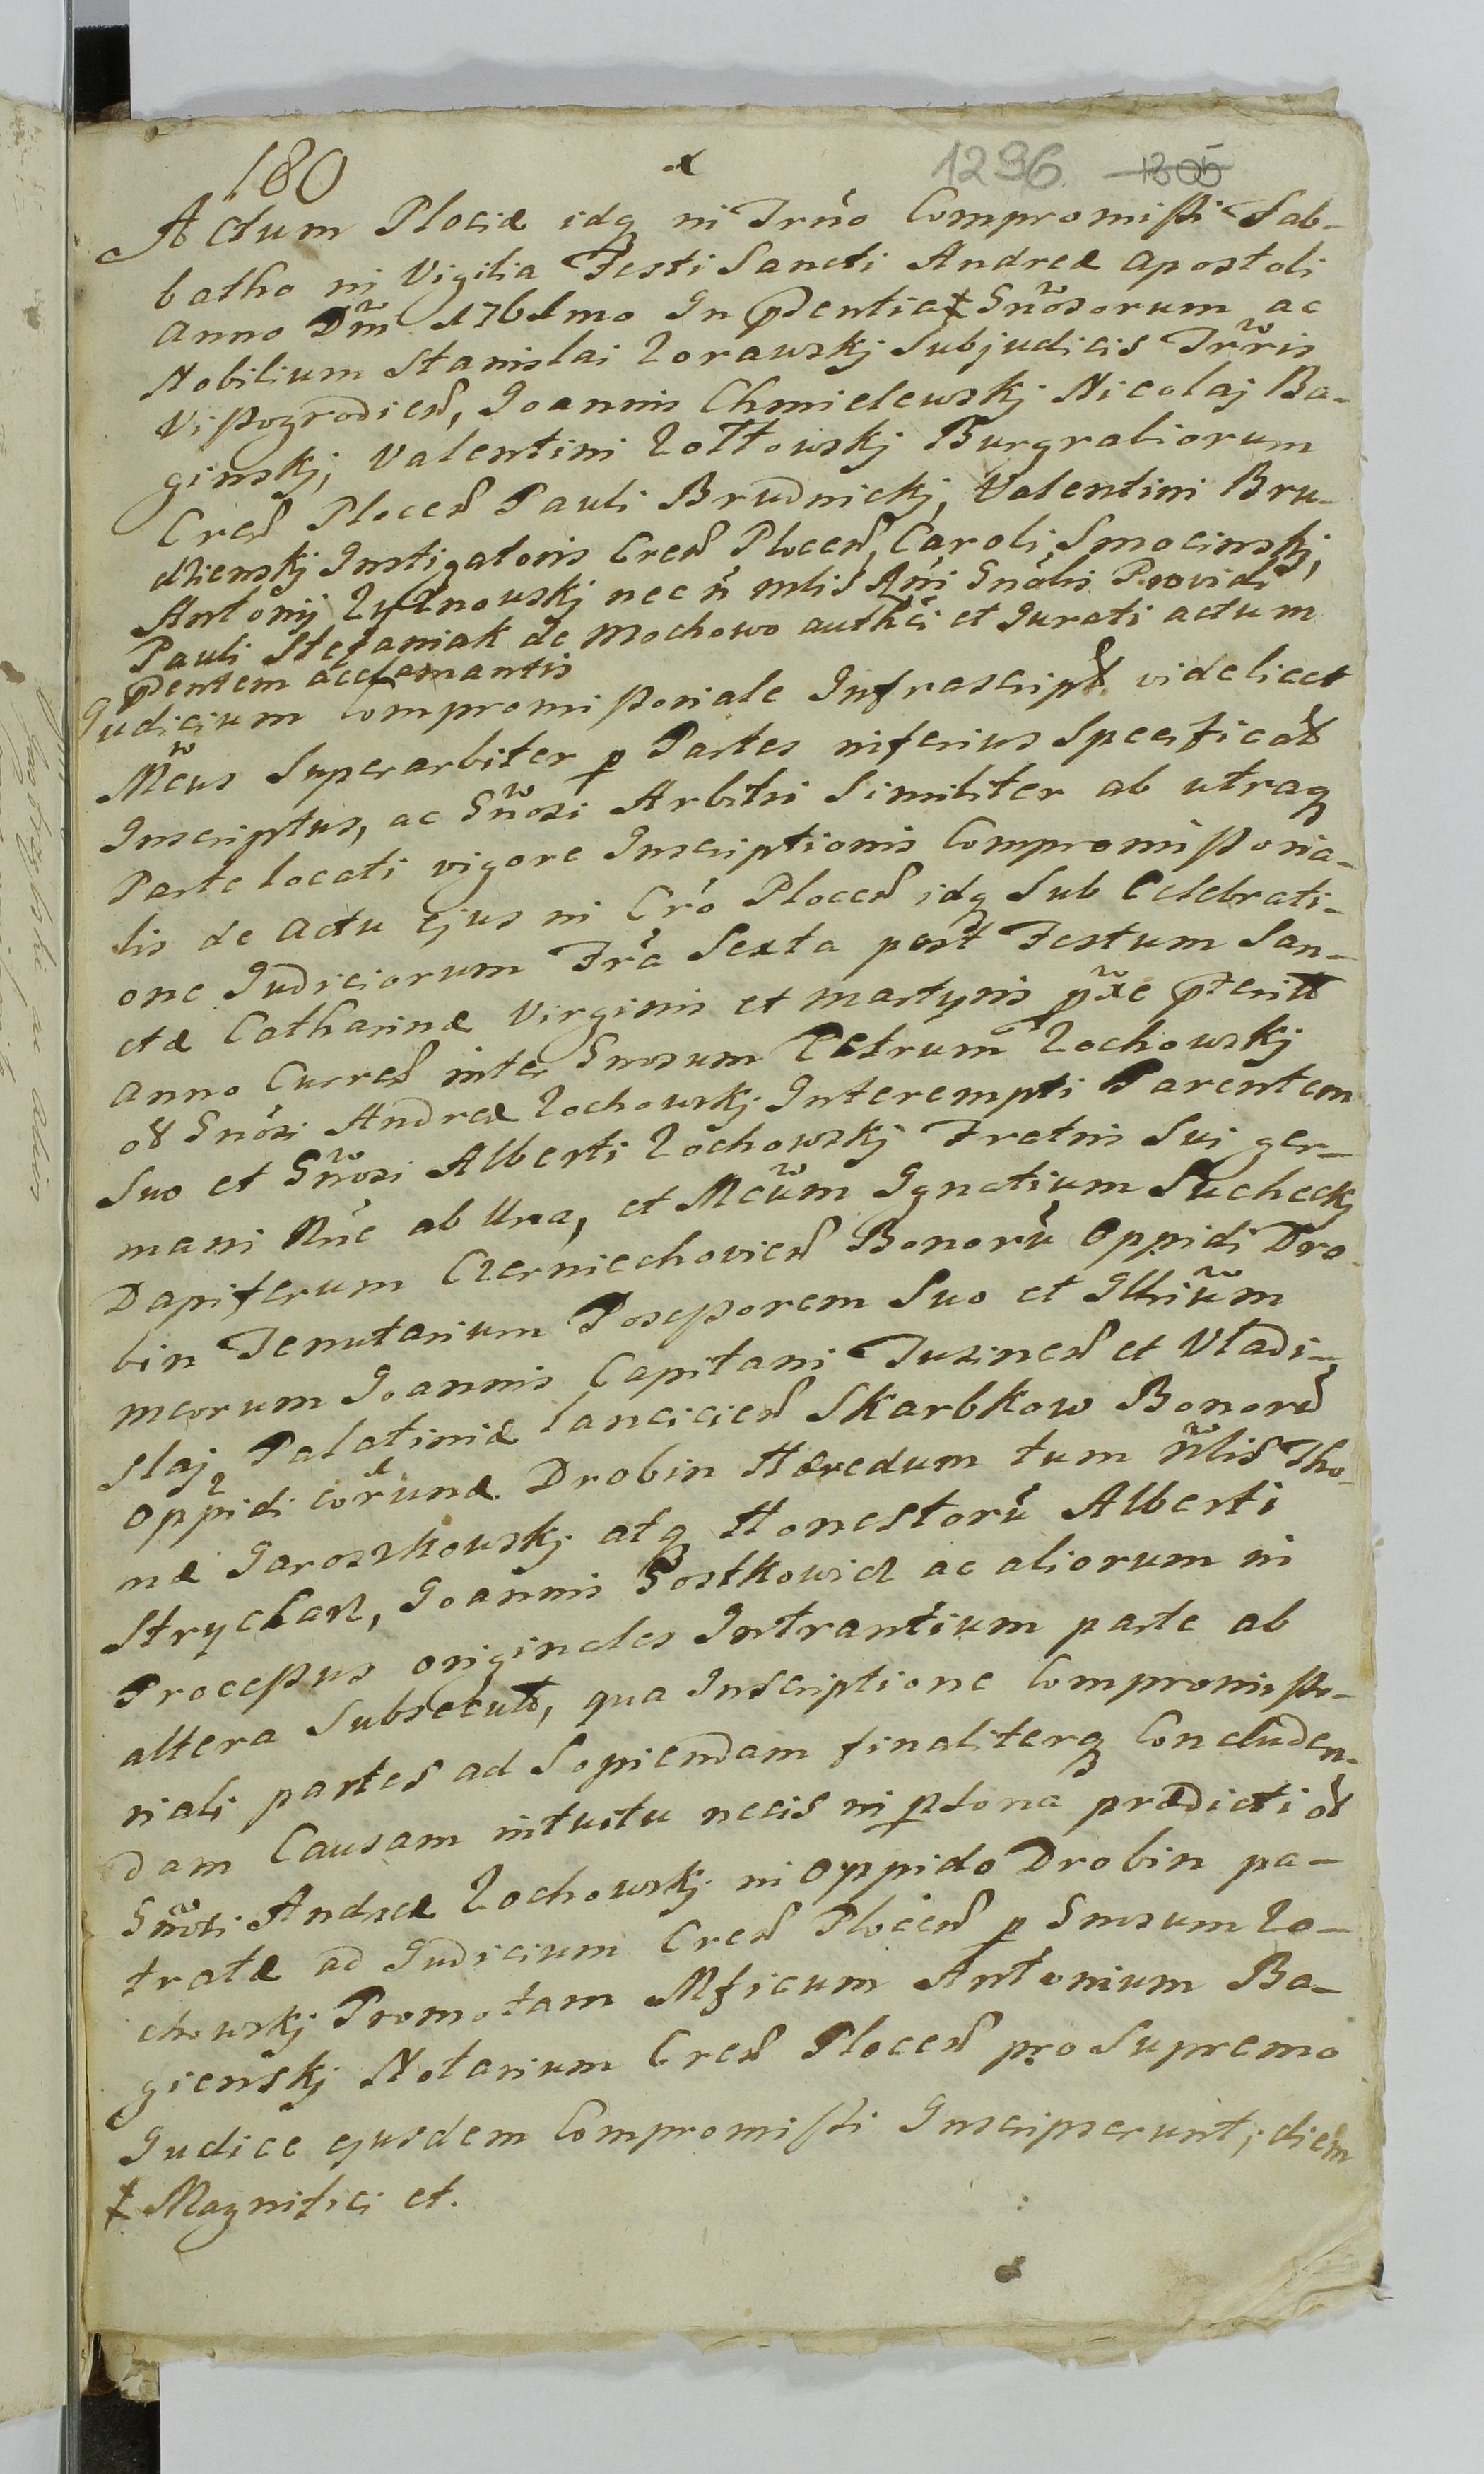 180
1296 1305
Actum Plociæ idq in Trno Compromissi Sab-
batho in Vigilia Festi Sancti Andreæ Apostoli
Anno Dm 1761mo In pdentia ⨯ Gnosorum ac
Nobilium Stanislai Zorawskj Subjudicis Trris
Vissogrodien, Joannis Chmielewskj Nicolaj Ba-
ginskj, Valentini Zołtowskj Burgrabiorum
Cren Plocen Pauli Brudnickj, Valentini Bru-
dzienskj Instigatoris Cren Plocen, Caroli Smocinskj,
Antonij Zyznowskj nec n mlis Rni Gnalis Providi
Pauli Stefaniak de Mochowo authci et Jurati actum
pdentem acclamantis
Judicium Compromissoriale Infrascript videlicet
Mcus Superarbiter p Partes inferius Specificat
Inscriptus, ac Gnosi Arbitri Similiter ab utraq
Parte locati vigore Inscriptionis Compromissoria-
lis de Actu ejus in Cro Plocen idq Sub Celebrati-
one Judiciorum Fra Sexta post Festum San-
ctæ Catharinæ Virginis et Martyris pxe pterit
Anno Curren inter Gnosum Petrum Zochowskj
ol Gnosi Andreæ Zochowskj Interempti Parentem
Suo et Gnosi Alberti Zochowskj Fratris Sui ger-
mani Nne ab Una, et Mcum Ignatium Sucheckj
Dapiferum Czerniechovien Bonoru Oppidi Dro-
bin Tenutarium Possessorem Suo et Illrium
Mcorum Joannis Capitani Tuszinen et Vladi-
slaj Palatiniæ Lancicien Skarbkow Bonoru
Oppidi corunæ Drobin Hæredum tum nlis Tho-
mæ Jaroszkowskj atq Honestoru Alberti
Stryclarz, Joannis Gostkowicz ac aliorum in
Processus originales Intrantium parte ab
altera Subsecut, qua Inscriptione Compromisso-
riali partes ad Sopiendam finaliterq Concluden-
dam Causam intuitu necis in psona prædicti ol
Gnosi Andreæ Zochowskj in Oppido Drobin pa-
tratæ ad Judicium Cren Plocen p Gnosum Zo-
chowskj Promotam Mficum Antonium Ba-
gienskj Notarium Cren Plocen pro Supremo
Judice ejusdem Compromissi Inscripserunt; diem
⨯ Magnifici et.